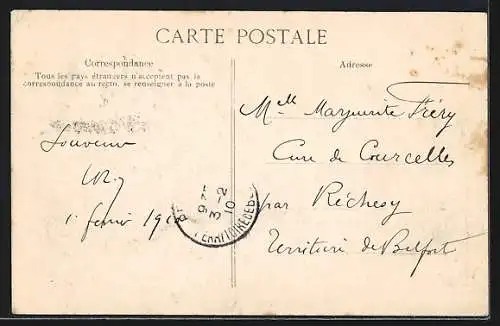 CARTE POSTALE
Correspondance
Tous les pays étrangers n'acceptent pas la
correspondance au recto, se renseigner à la poste
Adresse
Souvenir
1 février 1910
Melle Marguerite Fréry
Cure de Courcelles
par Réchésy
Territoire de Belfort
9 3-2 10
TERRITOIRE DE BE